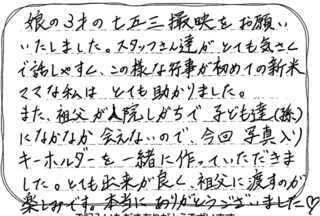 娘の3才の七五三撮映をお願い
いたしました。スタッフさん達がとても気さく
で話しやすく、この様な行事が初めての新米
ママな私は とても助かりました。
また、祖父が入院しがちで 子ども達(孫)
になかなか会えないので、今回 写真入り
キーホルダーを一緒に作っていただきま
した。とても出来が良く、祖父に渡すのが
楽しみです。本当にありがとうございました♡